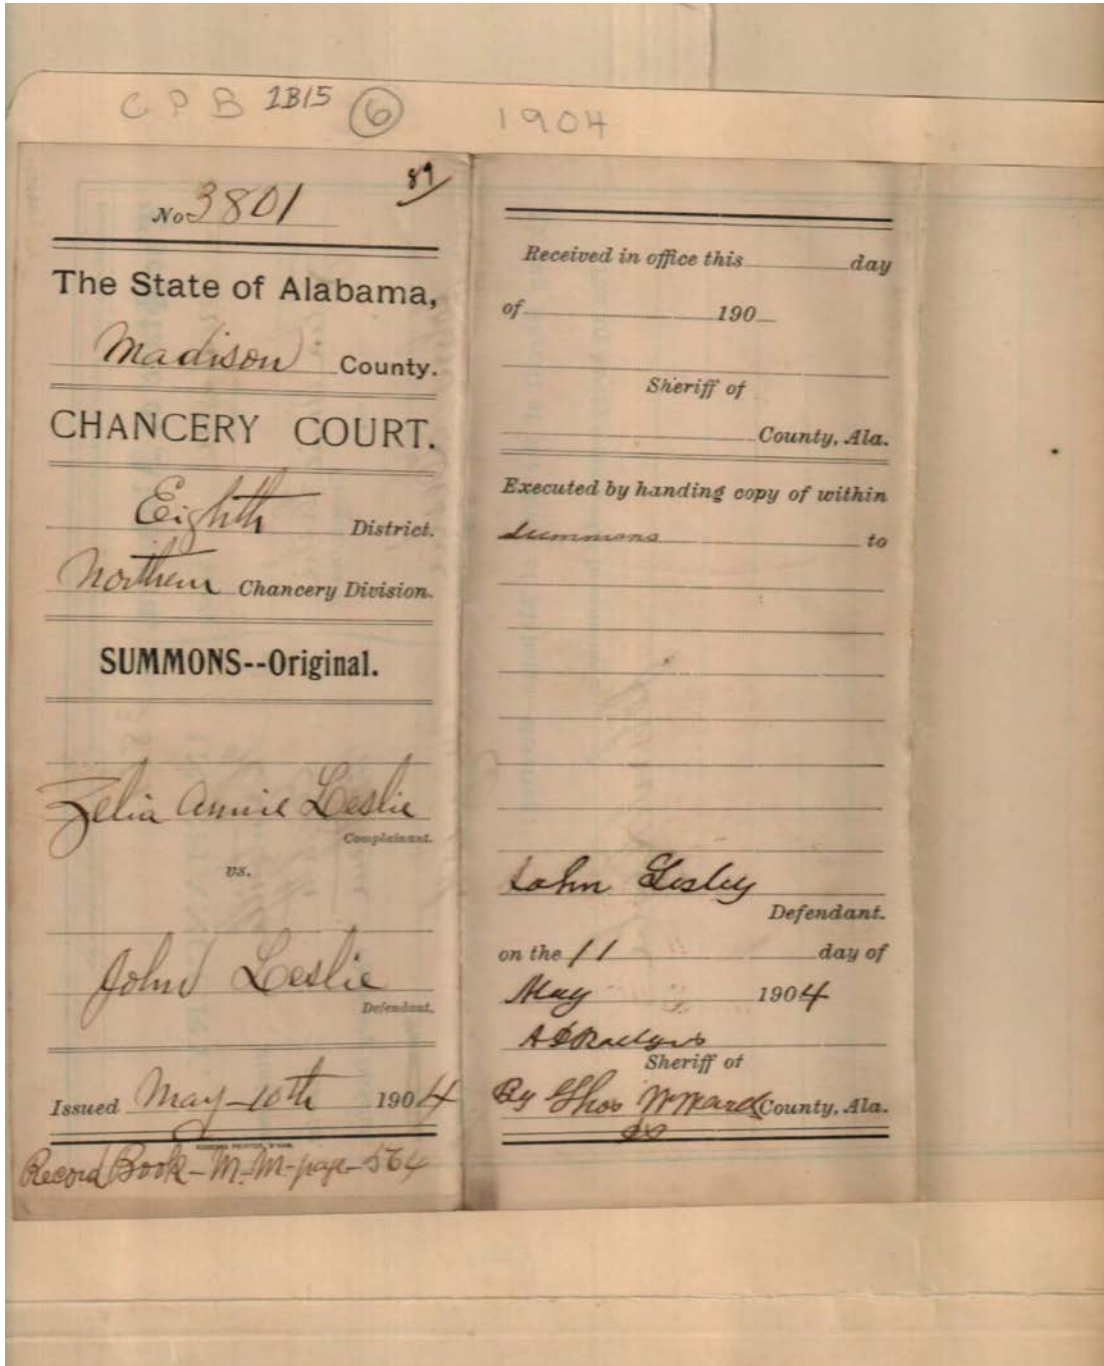 CPB 1B15 6 1904
No 3801
The State of Alabama,
Madison County.
CHANCERY COURT.
Eighth District.
Northern Chancery Division.
SUMMONS--Original.
Zelia Annie Leslie
Complainant.
vs.
John Leslie
Defendant.
Issued May-10th 1904
Record Book-M.M-page-564
Received in office this day
of 190
Sheriff of
County, Ala.
Executed by handing copy of within
summons to
John Lesley
Defendant.
on the 11 day of
May 1904
A D Rodgers
Sheriff of
By Thos W Ward County, Ala.